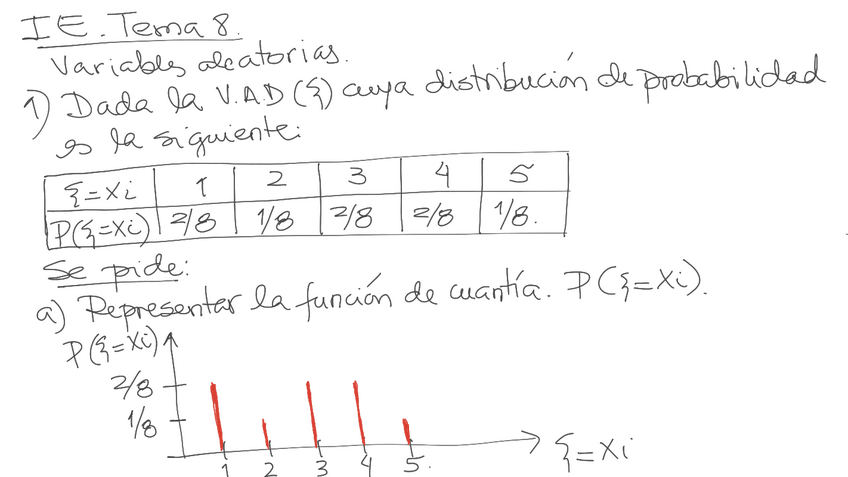 IE. Tema 8.
Variables aleatorias.
1) Dada la V.A.D (ξ) cuya distribución de probabilidad
es la siguiente:
ξ=Xi 1 2 3 4 5
P(ξ=Xi) 2/8 1/8 2/8 2/8 1/8.
Se pide:
a) Representar la función de cuantía. P(ξ=Xi).
P(ξ=Xi)
2/8
1/8
1 2 3 4 5.
ξ=Xi